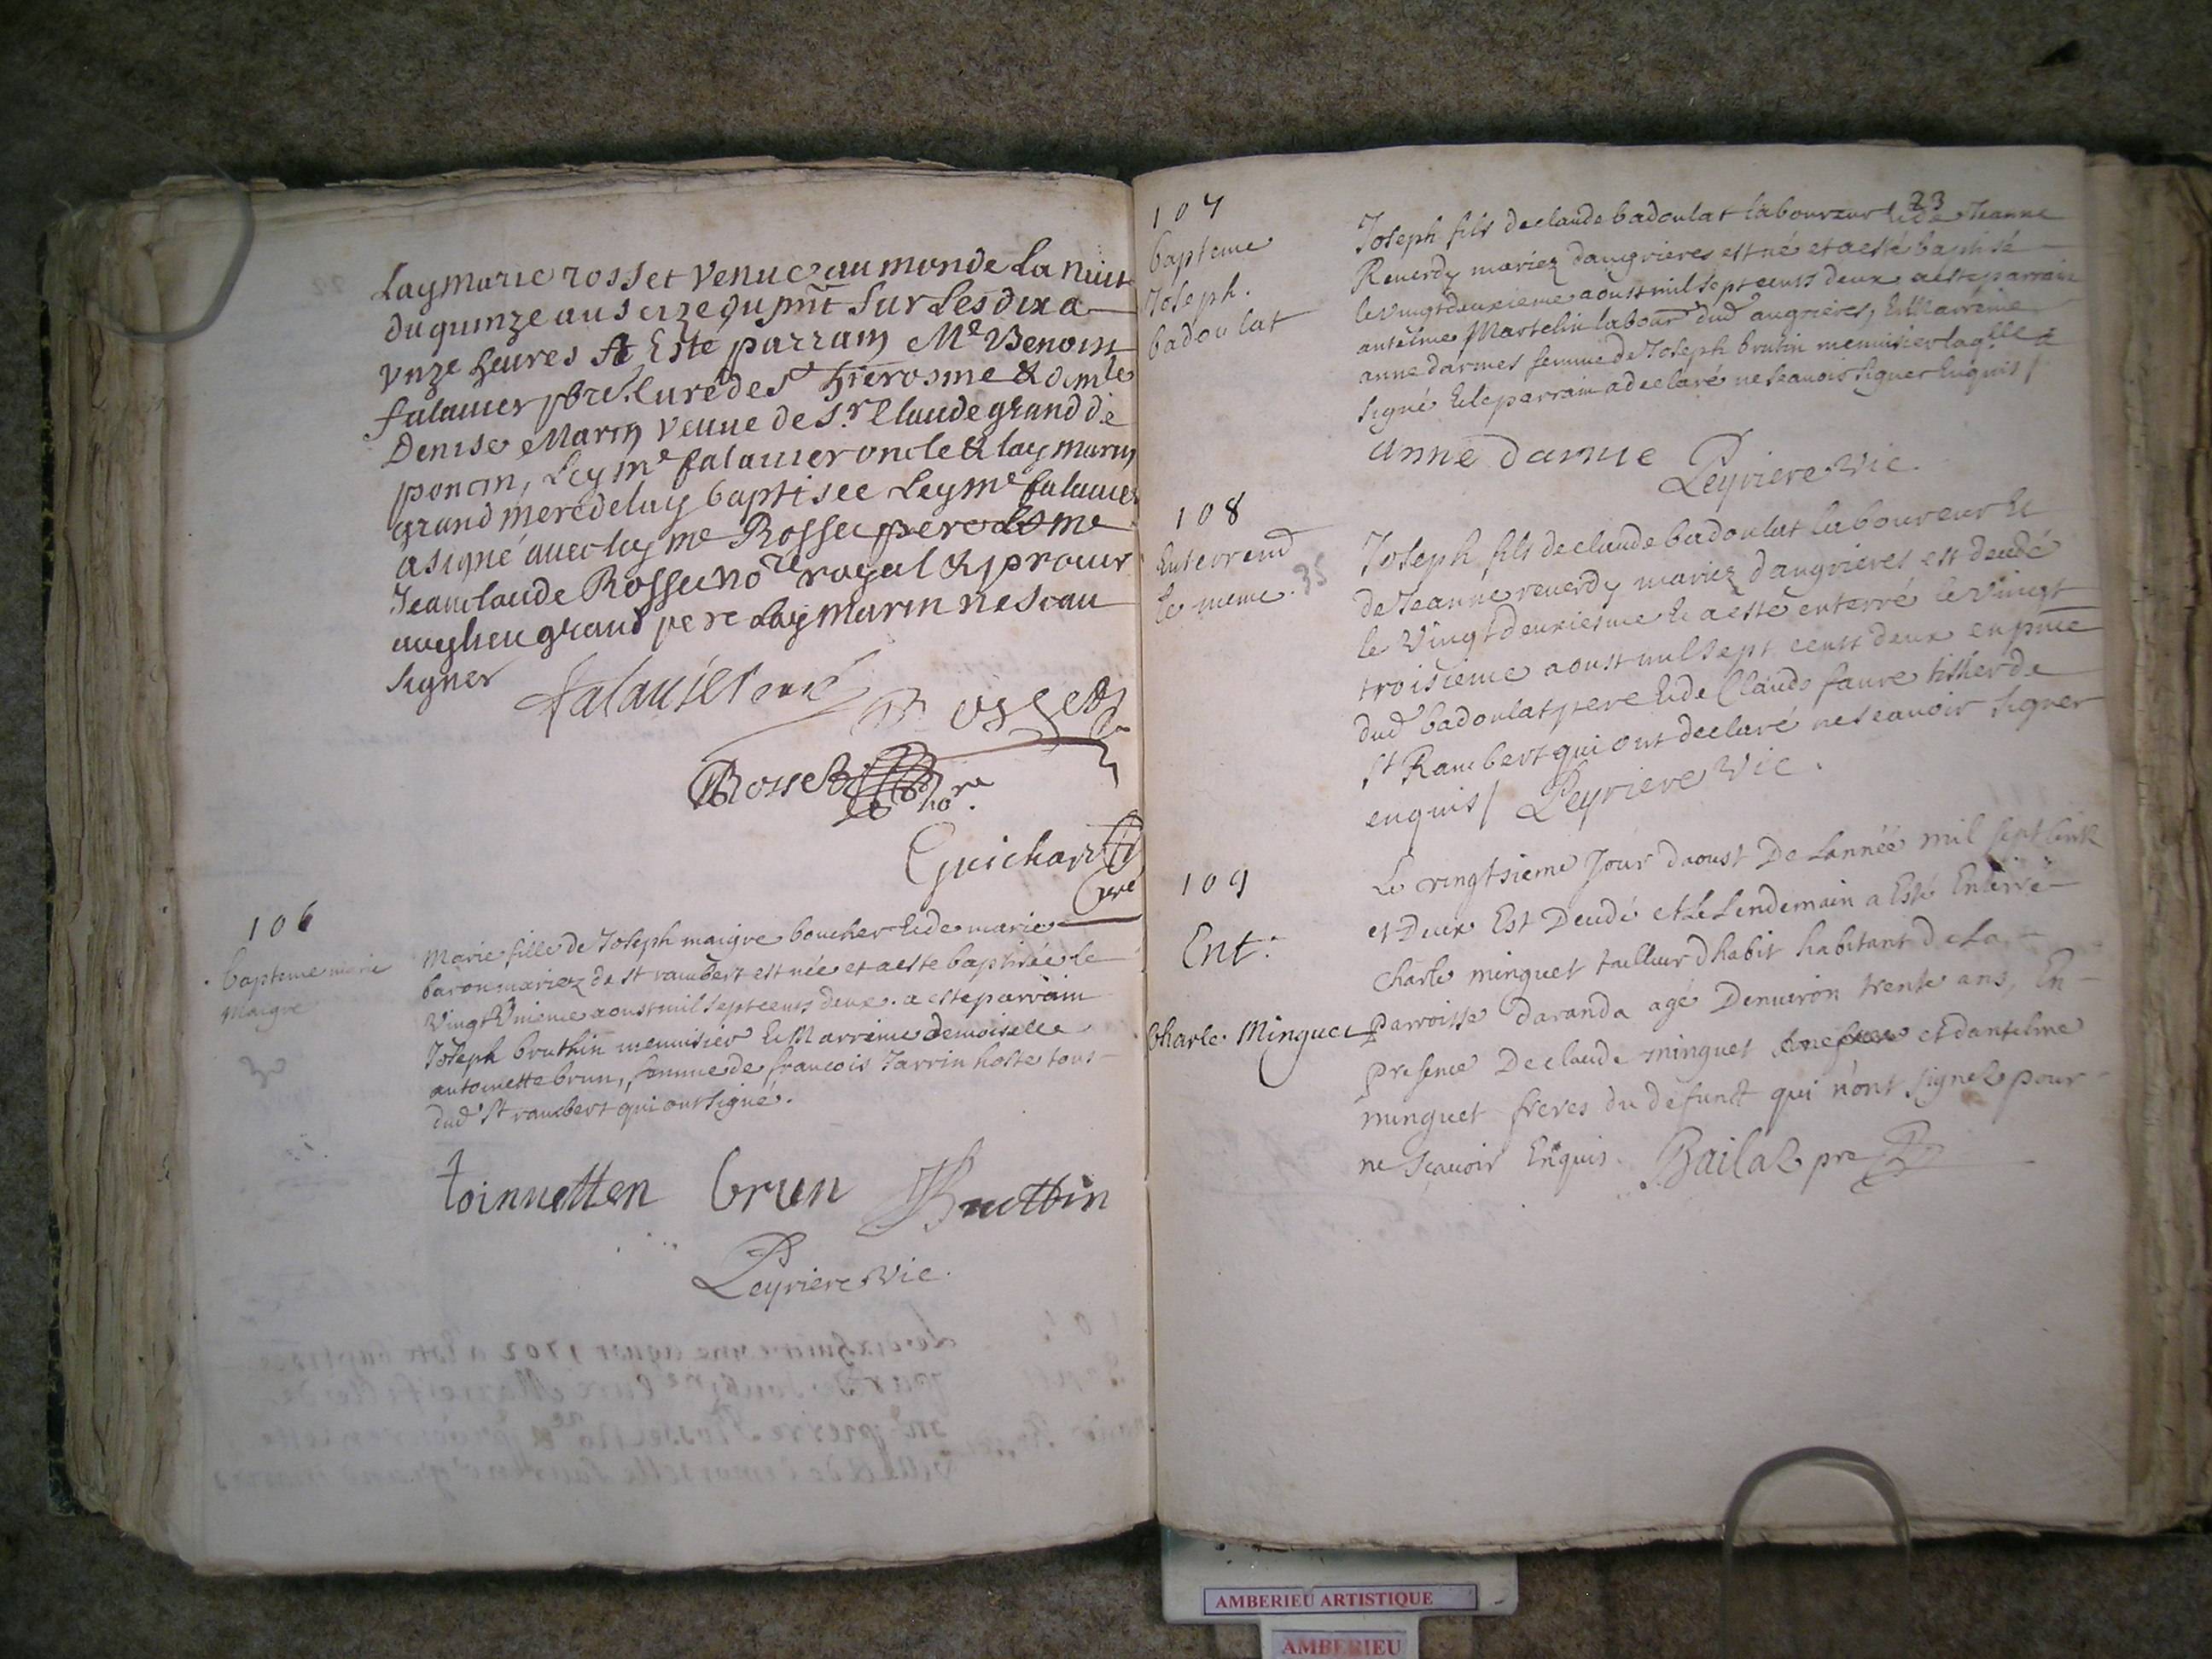 Lay marie rosset venue au monde la nuit
du quinze au seize du pnt sur les dix a
unze heures A Esté parrain Me Benoist
falauier pbre Curé de St hierosme & dmle
Denise Marin veuue de Sr Claude grand de
poncin, Ley me falauier oncle & lay marin
grand mere de lay baptisee Ley me falauier
a signé auec lay me Rosset pere & me
Jean claude Rosset no.re royal & procur
aud lieu grand pere lay marin ne scau
signer
falauier curé Rosset
Rosset no.re
Guichard
Curé
106
bapteme marie
Maigre
Marie fille de Joseph maigre boucher et de marie
baron mariez de st rambert est née et a esté baptisée le
Vingt Unieme aoust mil sept cents deux. a esté parrain
Joseph bruthin menuisier et Marreine demoiselle
antoinette brun, femme de francois Jarrin hoste tous
dud St rambert qui ont signé.
toinnetten brun Bruttin
Leyriere Vic.
107
bapteme
Joseph.
badoulat
23
Joseph fils de claude badoulat laboureur et de Jeanne
Reuerdy mariez daugrieres est né et a esté baptisé
le vingt deuxieme aoust mil sept cents deux a esté parrain
antelme Martelin labour dud augrieres, et Marreine
anne darmes femme de Joseph brutin menuisier laqlle a
signé et le parrain a declaré ne scauoir signer enquis /
anne darme Leyriere Vic.
108
Enterremt
le meme. 35
Joseph fils de claude badoulat laboureur et
de Jeanne reuerdy mariez daugrieres est decedé
le Vingt deuxiesme et a esté enterré le Vingt
troisieme aoust mil sept cents deux en pnce
dud badoulat pere et de Claude faure tisser de
st Rambert qui ont declaré ne scauoir signer
enquis / Leyriere Vic.
109
Ent.
Charle Minguet
Le vingtsieme Jour daoust De Lannée mil sept Cent
et Deux Est Decedé et Le Lendemain a Esté Enterré
Charle minguet tailleur dhabit habitant de La
parroisse daranda agé Denuiron trente ans, En
presence De claude minguet et dantelme
minguet freres du defunct qui nont signez pour
ne scauoir Enquis. Bailaz pre
AMBERIEU ARTISTIQUE
AMBERIEU